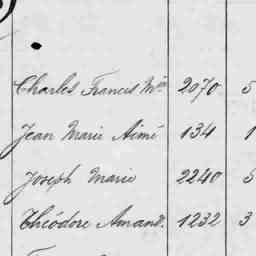 Charles Francis Mie 2070 5
Jean Marie Aimé 134 1
Joseph Marie 2240 5
Théodore Amand. 1232 3